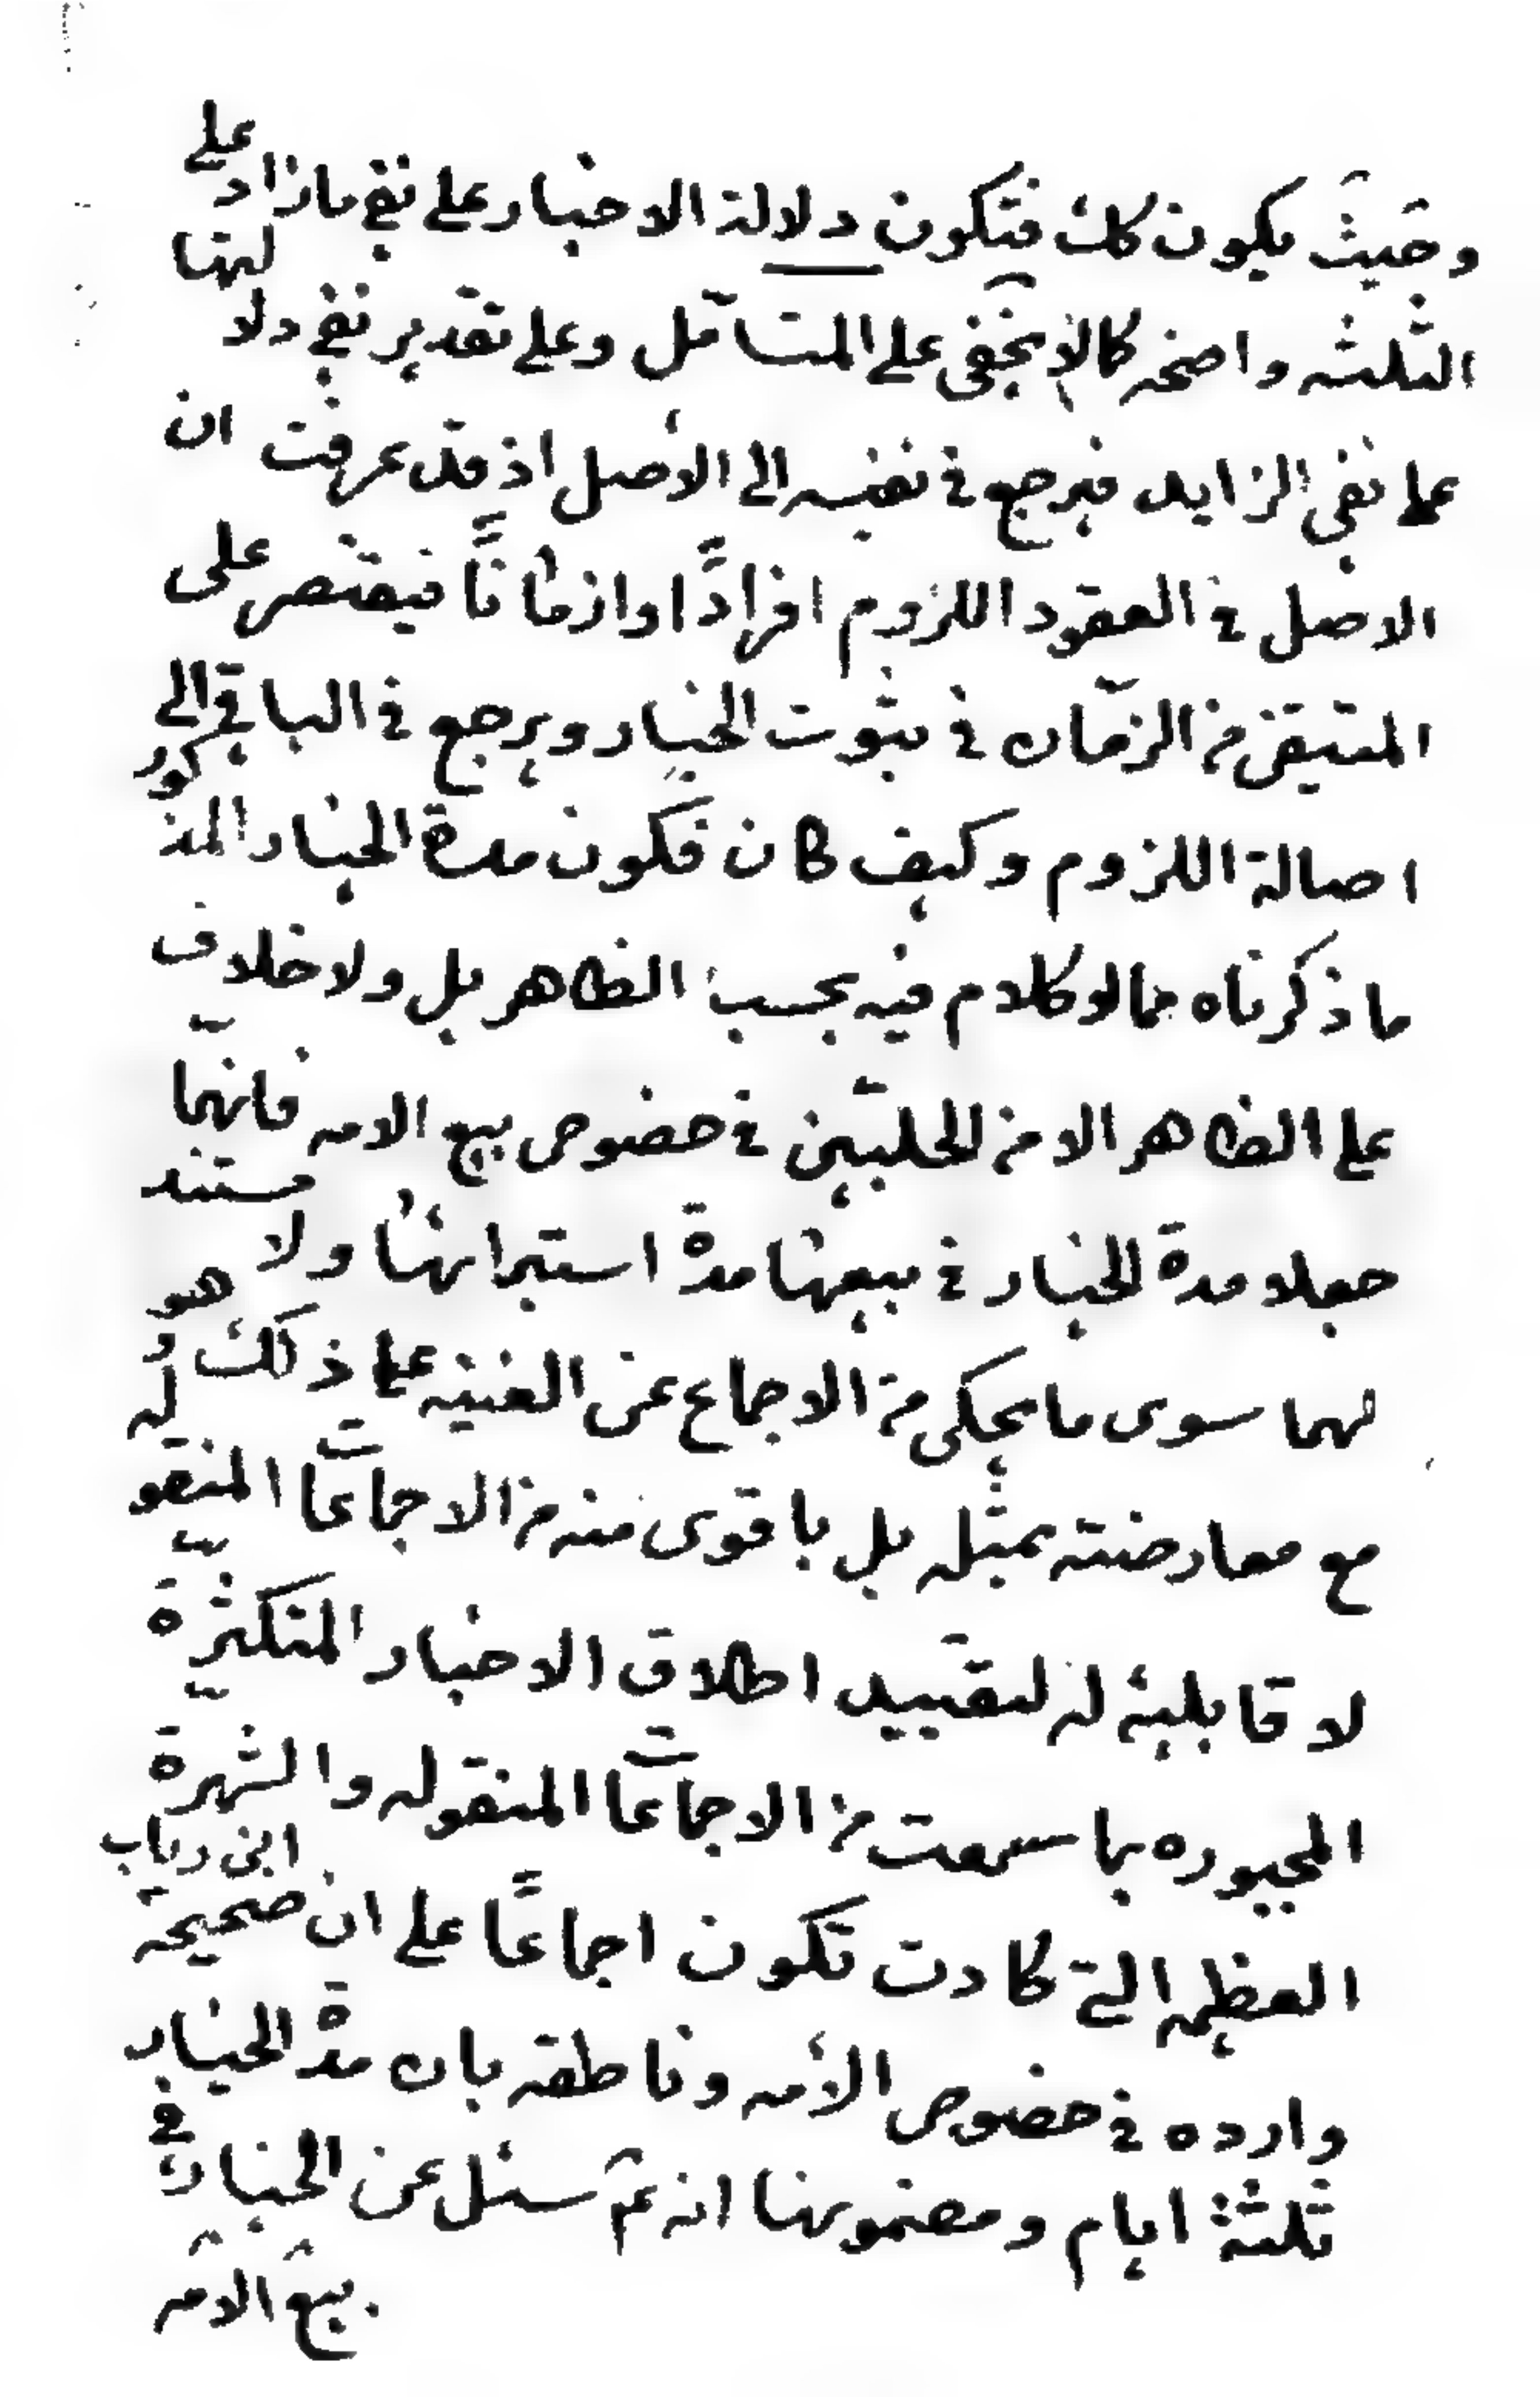 وحيث يكون كك فتكون دلالة الاخبار على نفي ما زاد على
الثلثه واضحه كما لا يخفى على المتأمل وعلى تقدير نفي دلالتها
على نفي الزايد فيرجع في نفيه الى الأصل اذ قد عرفت ان
الاصل في العقود اللزوم افرادًا وازمانًا فيقتصر على
المتيقن من الزمان في ثبوت الخيار ويرجع في الباقي الى
اصالة اللزوم وكيف كان فكون مدة الخيار المذكور
ما ذكرناه مما لا كلام فيه بحسب الظاهر بل ولا خلاف
على الظاهر الا من الحلبيين في خصوص بيع الامه فانهما
جعلا مدة الخيار في بيعها مدة استبرائها ولا مستند
لهما سوى ما يحكى من الاجماع عن الغنيه على ذلك وهو
مع معارضته بمثله بل باقوى منه من الاجماعات المنقوله
لا قابلية له لتقييد اطلاق الاخبار المتكثرة
المجبوره بما سمعت من الاجماعات المنقوله والشهرة
العظيمه التي كادت تكون اجماعًا على ان صحيحة ابن رياب
وارده في خصوص الأمه وناطقه بان مدة الخيار
ثلثة ايام ومضمونها انه عم سئل عن الخيار في
بيع الامه